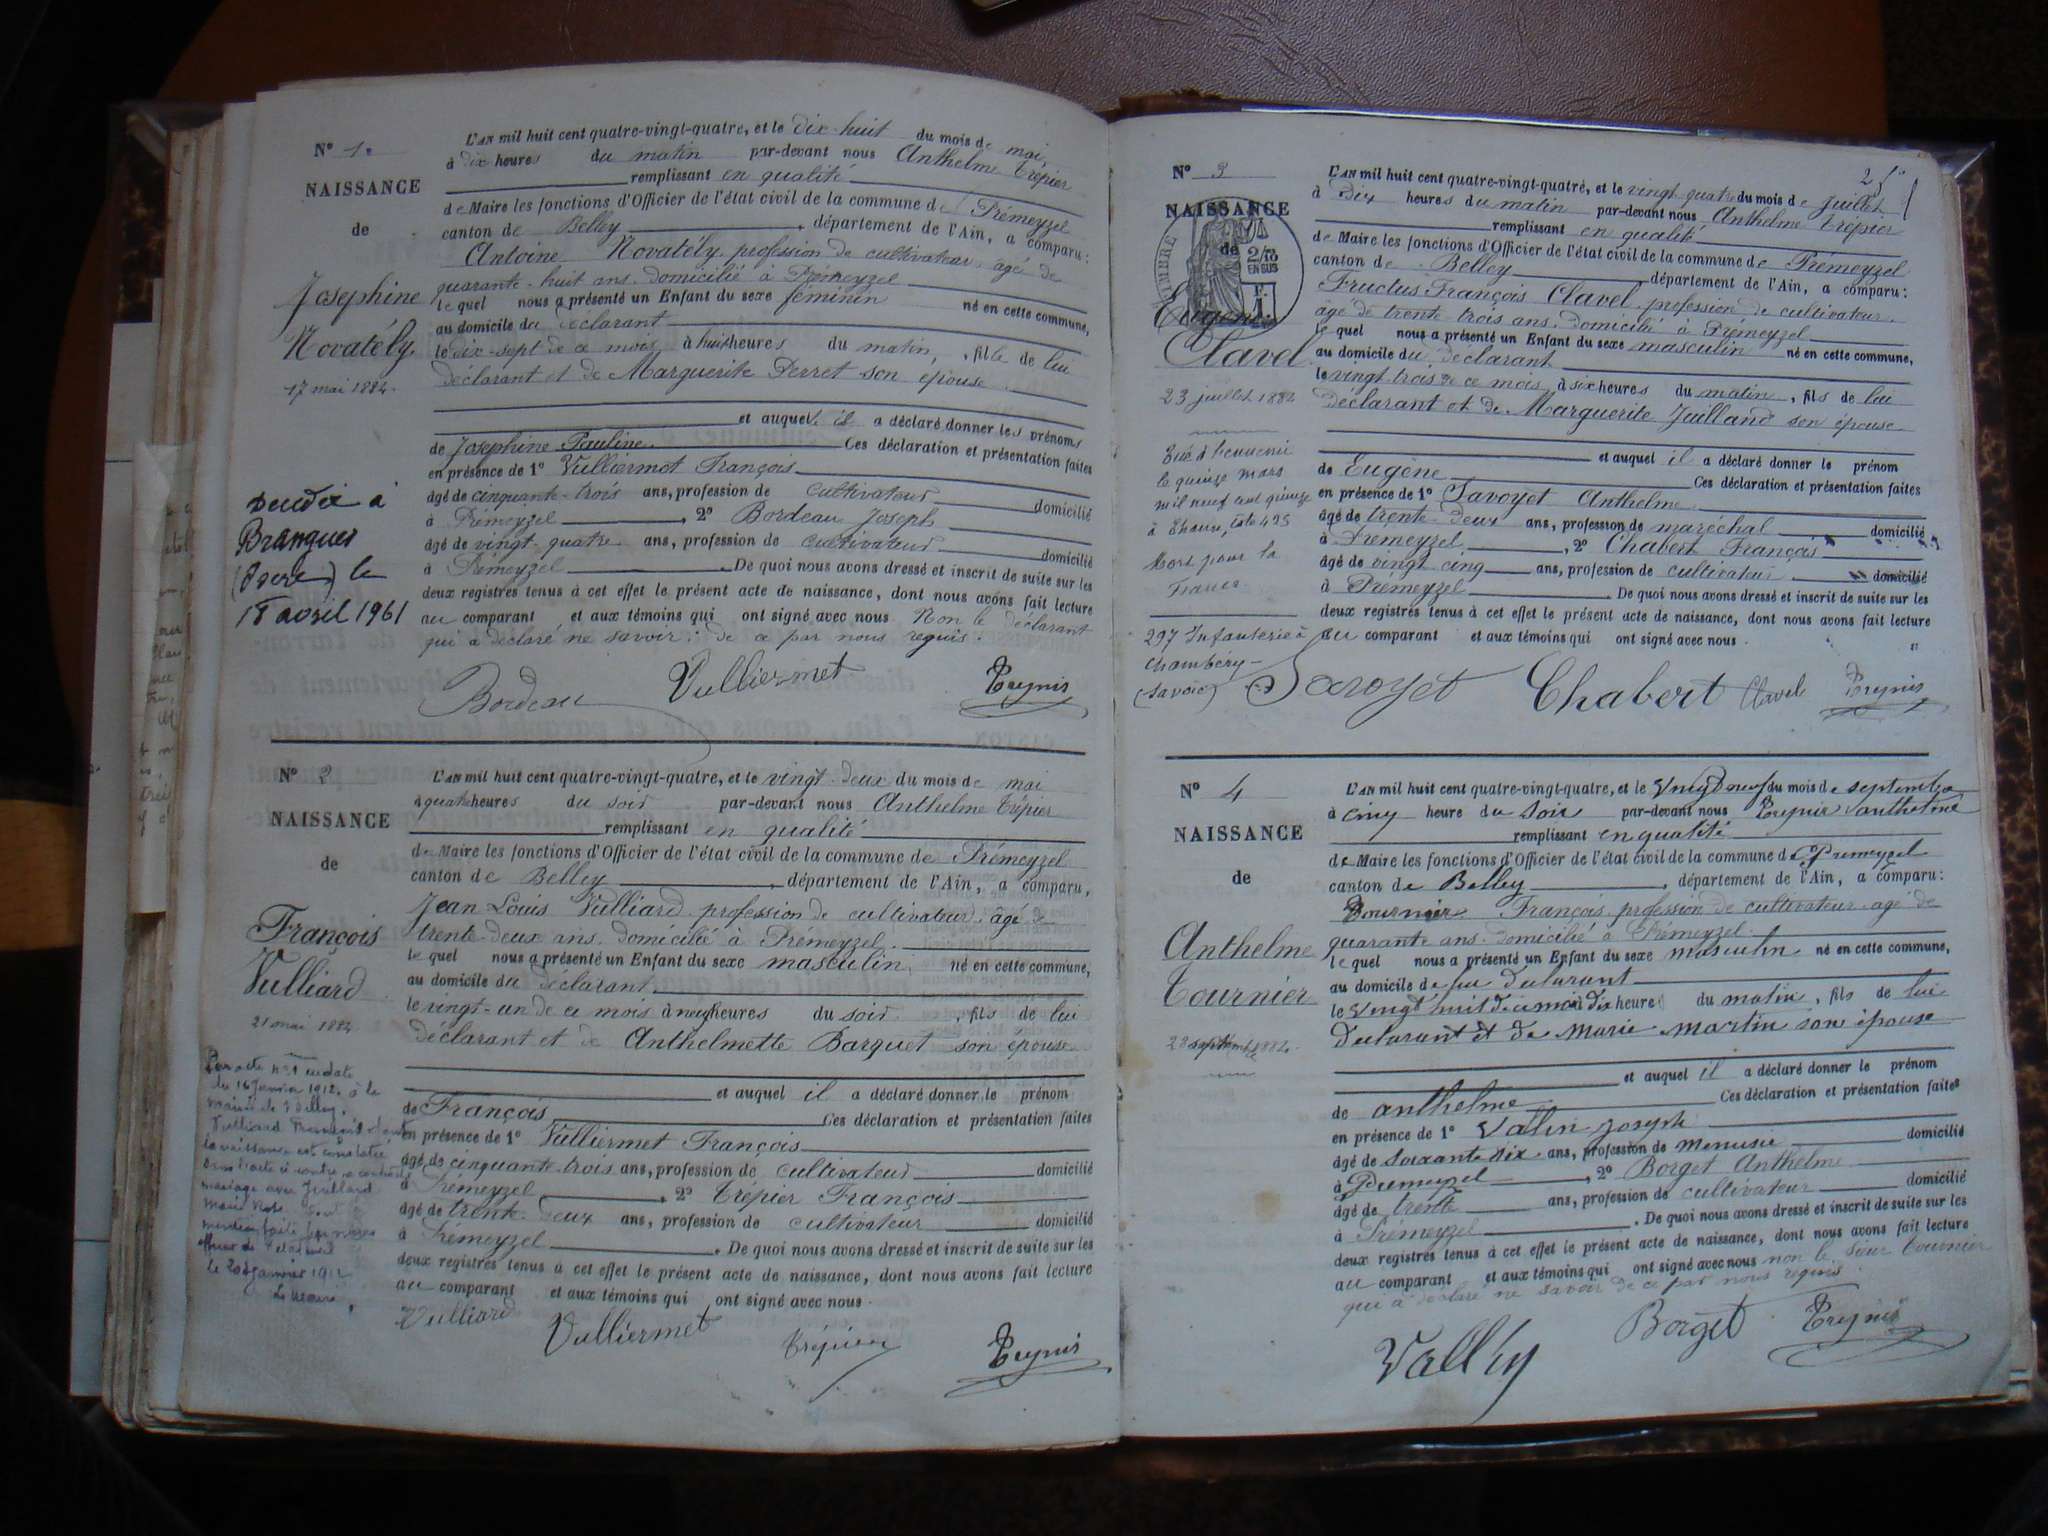 N° 1.
NAISSANCE
de
Josephine
Novatély
17 mai 1884.
Décédée à
Brangues
(Isère) le
18 avril 1961
L'AN mil huit cent quatre-vingt-quatre, et le dix-huit du mois de mai
à dix heures du matin par-devant nous Anthelme Trépier
remplissant en qualité
de Maire les fonctions d'Officier de l'état civil de la commune de Prémeyzel
canton de Belley, département de l'Ain, a comparu:
Antoine Novatély, profession de cultivateur, âgé de
quarante-huit ans, domicilié à Prémeyzel
lequel nous a présenté un Enfant du sexe féminin né en cette commune,
au domicile du déclarant
le dix-sept de ce mois, à huit heures du matin, fille de lui
déclarant et de Marguerite Perret son épouse.
et auquel il a déclaré donner les prénoms
de Josephine Pauline. Ces déclaration et présentation faites
en présence de 1° Vulliermet François
âgé de cinquante-trois ans, profession de cultivateur domicilié
à Prémeyzel, 2° Bordeau Joseph
âgé de vingt-quatre ans, profession de cultivateur domicilié
à Prémeyzel. De quoi nous avons dressé et inscrit de suite sur les
deux registres tenus à cet effet le présent acte de naissance, dont nous avons fait lecture
au comparant et aux témoins qui ont signé avec nous Non le déclarant
qui a déclaré ne savoir; de ce par nous requis.
Bordeau Vulliermet
N° 2
NAISSANCE
de
François
Vulliard
21 mai 1884
Par acte n° 1 en date
du 16 Janvier 1912, à la
mairie de
Vulliard François dont
la naissance est constatée
dans l'acte ci contre, a contracté
mariage avec Juilland
Marie
mention faite par nous
officier de l'état civil
le 20 Janvier 1912
Le Maire,
L'AN mil huit cent quatre-vingt-quatre, et le vingt-deux du mois de mai
à quatre heures du soir par-devant nous Anthelme Trépier
remplissant en qualité
de Maire les fonctions d'Officier de l'état civil de la commune de Prémeyzel
canton de Belley, département de l'Ain, a comparu,
Jean Louis Vulliard, profession de cultivateur, âgé de
trente-deux ans, domicilié à Prémeyzel.
lequel nous a présenté un Enfant du sexe masculin, né en cette commune,
au domicile du déclarant
le vingt-un de ce mois à neuf heures du soir, fils de lui
déclarant et de Anthelmette Barquet son épouse
et auquel il a déclaré donner le prénom
de François Ces déclaration et présentation faites
en présence de 1° Vulliermet François
âgé de cinquante-trois ans, profession de cultivateur domicilié
à Prémeyzel, 2° Trépier François
âgé de trente-deux ans, profession de cultivateur domicilié
à Prémeyzel. De quoi nous avons dressé et inscrit de suite sur les
deux registres tenus à cet effet le présent acte de naissance, dont nous avons fait lecture
au comparant et aux témoins qui ont signé avec nous.
Vulliard Vulliermet Trépier
N° 3
NAISSANCE
de
TIMBRE
2/10
EN SUS
Eugène
Clavel
23 juillet 1884
Tué à
le quinze mars
mil neuf cent quinze
à côte 425
Mort pour la
France.
297 Infanterie à
Chambéry
(Savoie)
L'AN mil huit cent quatre-vingt-quatre, et le vingt-quatre du mois de juillet
à dix heures du matin par-devant nous Anthelme Trépier
remplissant en qualité
de Maire les fonctions d'Officier de l'état civil de la commune de Prémeyzel
canton de Belley département de l'Ain, a comparu:
Fructus François Clavel, profession de cultivateur,
âgé de trente-trois ans, domicilié à Prémeyzel
lequel nous a présenté un Enfant du sexe masculin né en cette commune,
au domicile du déclarant
le vingt-trois de ce mois, à six heures du matin, fils de lui
déclarant et de Marguerite Juilland son épouse
et auquel il a déclaré donner le prénom
de Eugène Ces déclaration et présentation faites
en présence de 1° Savoyet Anthelme
âgé de trente-deux ans, profession de maréchal domicilié
à Prémeyzel, 2° Chabert François
âgé de vingt-cinq ans, profession de cultivateur domicilié
à Prémeyzel. De quoi nous avons dressé et inscrit de suite sur les
deux registres tenus à cet effet le présent acte de naissance, dont nous avons fait lecture
au comparant et aux témoins qui ont signé avec nous.
Savoyet Chabert Clavel
N° 4
NAISSANCE
de
Anthelme
Tournier
28 septembre 1884.
L'AN mil huit cent quatre-vingt-quatre, et le vingt neuf du mois de septembre
à cinq heure du soir par-devant nous anthelme
remplissant en qualité
de Maire les fonctions d'Officier de l'état civil de la commune de Premeyzel
canton de Belley, département de l'Ain, a comparu:
Tournier François, profession de cultivateur, âgé de
quarante ans, domicilié à Prémeyzel
lequel nous a présenté un Enfant du sexe masculin né en cette commune,
au domicile de déclarant
le vingt huit de ce mois à dix heures du matin, fils de lui
déclarant et de Marie Martin son épouse
et auquel il a déclaré donner le prénom
de anthelme Ces déclaration et présentation faites
en présence de 1° Vallin Joseph
âgé de soixante six ans, profession de Menusie domicilié
à Premeyzel, 2° Borget Anthelme
âgé de trente ans, profession de cultivateur domicilié
à Prémeyzel. De quoi nous avons dressé et inscrit de suite sur les
deux registres tenus à cet effet le présent acte de naissance, dont nous avons fait lecture
au comparant et aux témoins qui ont signé avec nous non le sieur Tournier
qui a déclaré ne savoir de ce par nous requis.
Borget